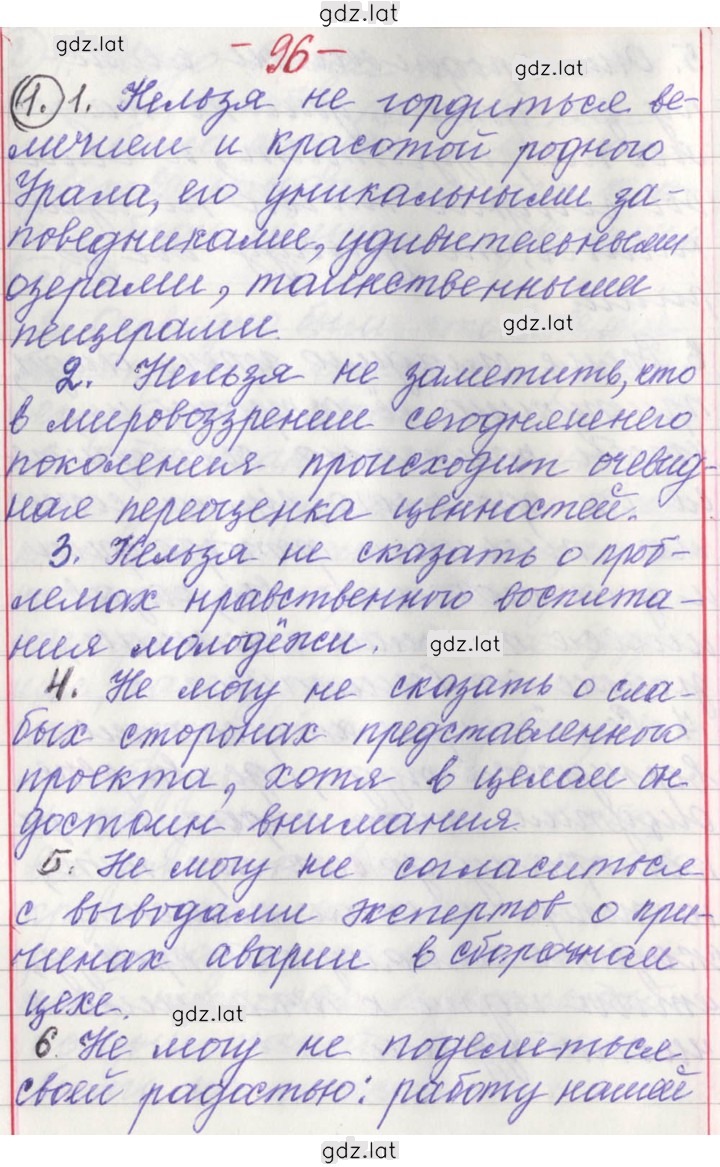 gdz.lat
gdz.lat
- 96 -
gdz.lat
1. 1. Нельзя не гордиться ве-
личием и красотой родного
Урала, его уникальными за-
поведниками, удивительными
озерами, таинственными
пещерами.
gdz.lat
2. Нельзя не заметить, что
в мировоззрении сегодняшнего
поколения происходит очевид-
ная переоценка ценностей.
3. Нельзя не сказать о проб-
лемах нравственного воспита-
ния молодёжи.
gdz.lat
4. Не могу не сказать о сла-
бых сторонах представленного
проекта, хотя в целом он
достоин внимания
5. Не могу не согласиться
с выводами экспертов о при-
чинах аварии в сборочном
цехе.
gdz.lat
6. Не могу не поделиться
своей радостью: работу нашей
gdz.lat